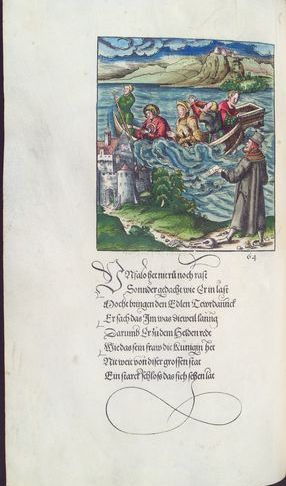 64
Vnfalo het nie rů noch rast
Sonnder gedacht wie Er in last
Mocht bringen den Edlen Tewrdannck
Er sach das Im was die weil lanng
Darumb Er zu dem Helden rede
Wie das sein fraw die Kunigin het
Nit weit von diser grossen stat
Ein starck schloss das sich sehen lat